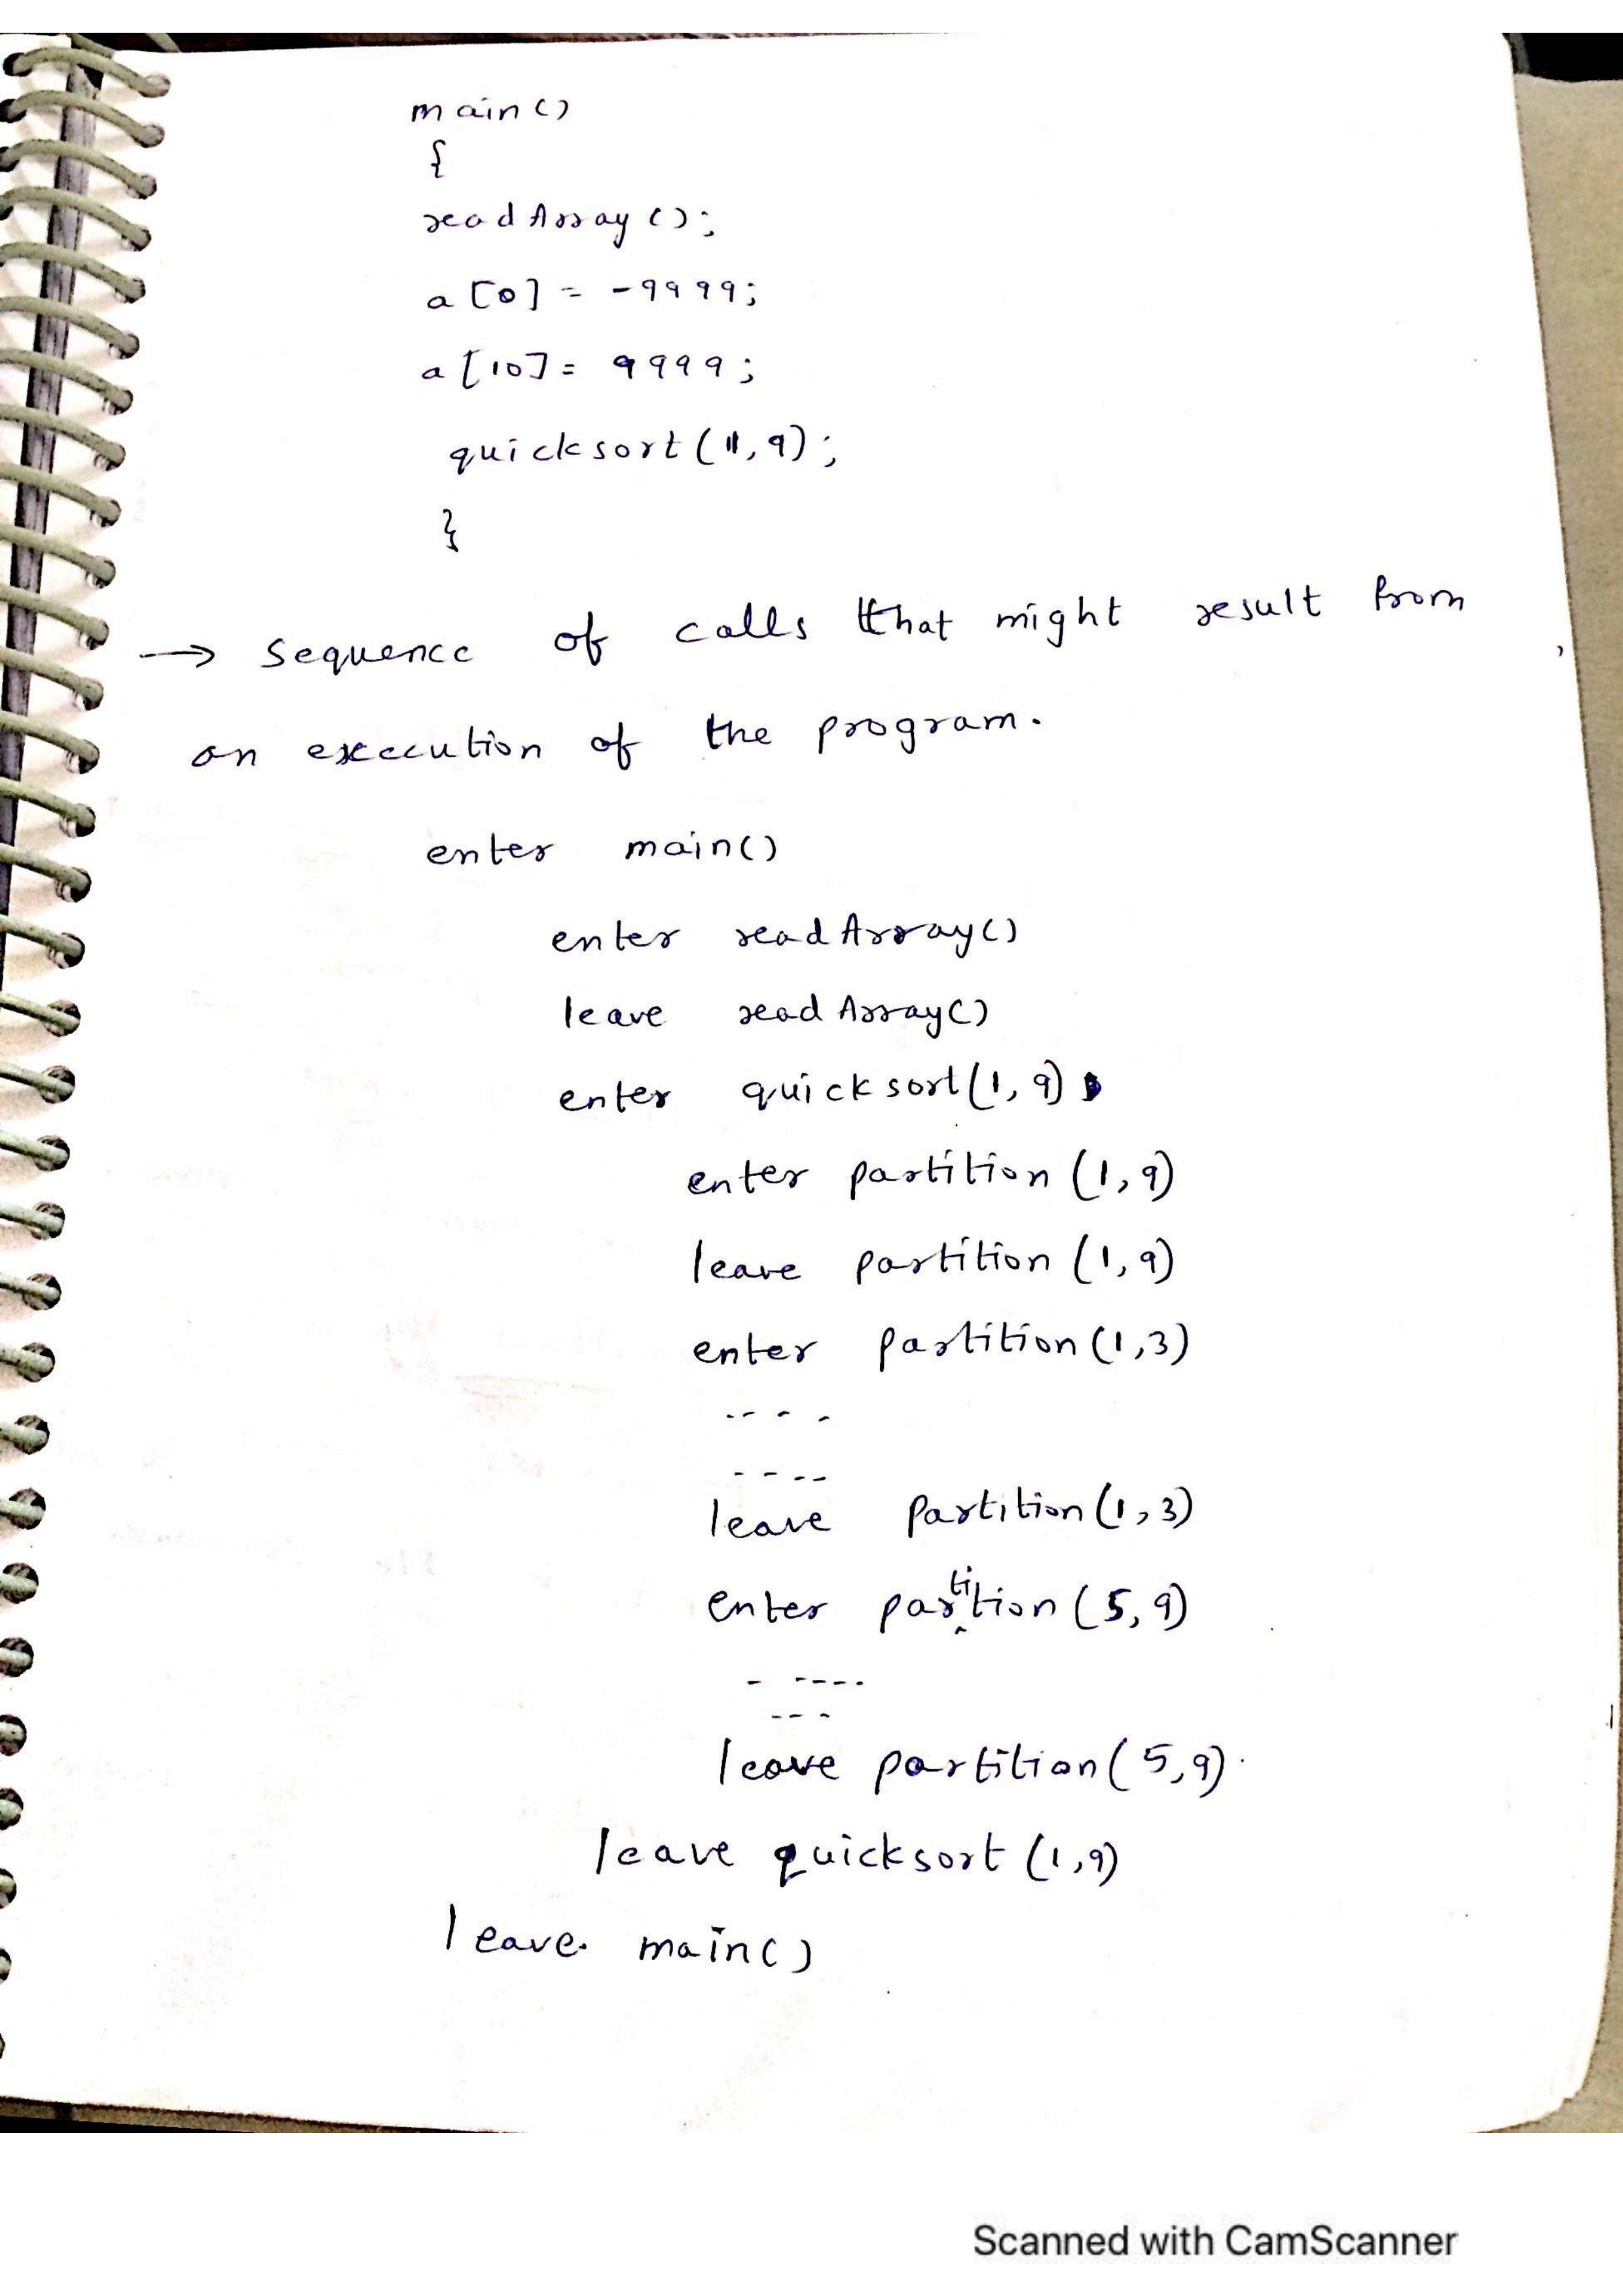 main()
{
readArray();
a[0] = -9999;
a[10] = 9999;
quicksort(1,9);
}
→ sequence of calls that might result from
an execution of the program.
enter main()
enter readArray()
leave readArray()
enter quicksort(1,9)
enter partition (1,9)
leave partition (1,9)
enter partition(1,3)
----
----
leave partition(1,3)
enter partition(5,9)
-----
---
leave partition(5,9).
leave quicksort (1,9)
leave. main()
Scanned with CamScanner